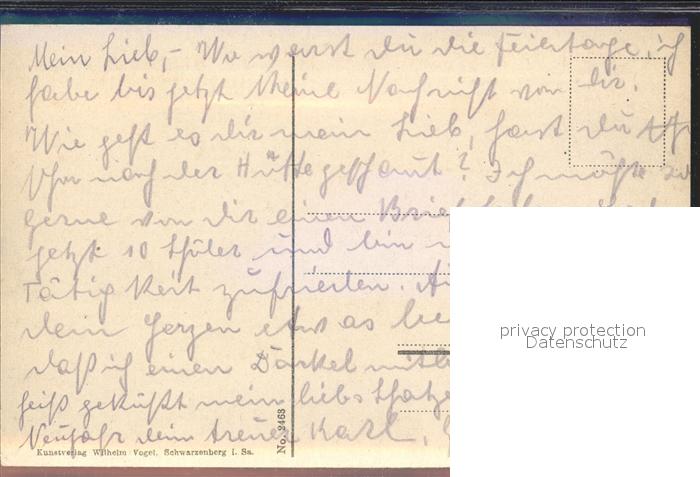 Mein Lieb,- Wo warst du die Feiertage, ich
habe bis jetzt keine Nachricht von dir.
Wie geht es dir mein Lieb, hast du
Uhr nach der Hütte geschaut? Ich möchte so
gerne von dir einen Brief
jetzt 10 Schüler und bin
Tätigkeit zufrieden.
dein Herzen etwas
daß ich einen Dackel
heiß geküßt mein liebs Schatze
Neujahr dein treuer Karl,
privacy protection
Datenschutz
No. 2463
Kunstverlag Wilhelm Vogel, Schwarzenberg i. Sa.